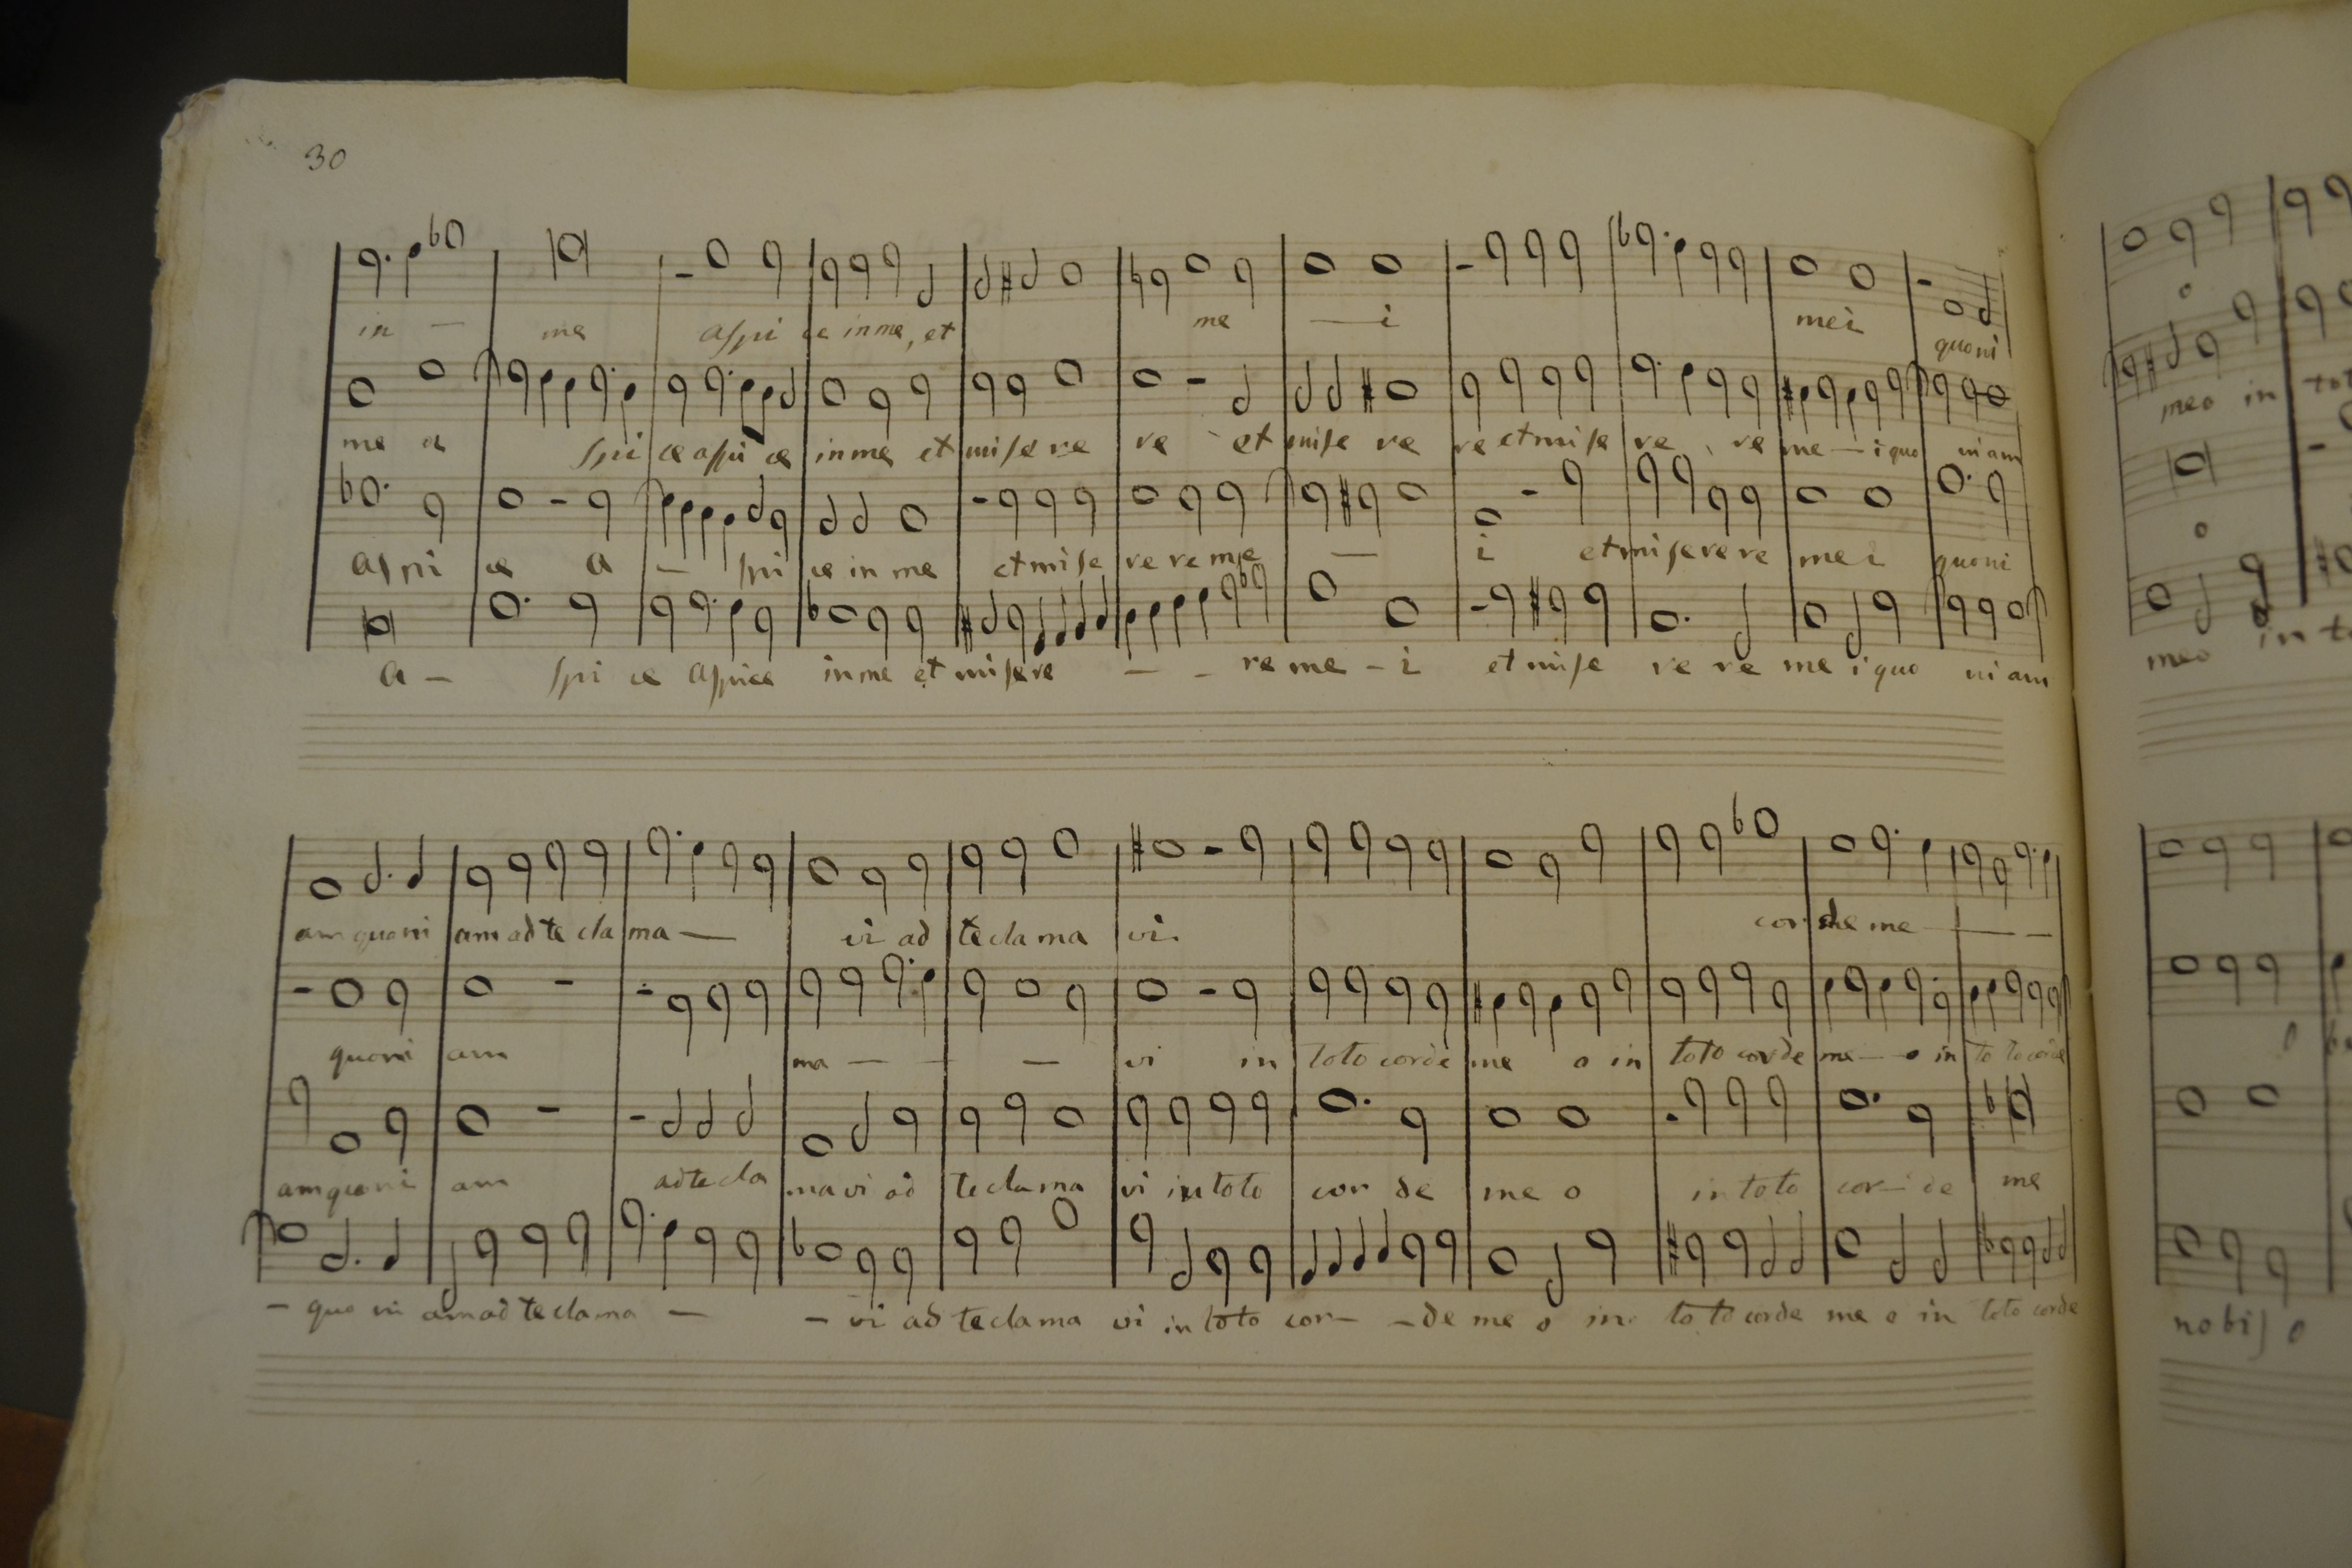 30
in — me aspi ce in me, et me — i mei quoni
me a spi ce aspi ce in me et mise re re et mise re re et mise re re me — i quo niam
aspi ce a — spi ce in me et mise re re me — i et miserere mei quoni
a — spi ce aspice in me et misere — - re me - i et mise re re me i quo niam
am quoni am ad te cla ma — vi ad te cla ma vi cor de me — —
quoni am ma — — — vi in toto corde me o in toto corde me — o in to to corde
am quoni am ad te cla ma vi ad te cla ma vi in toto cor de me o in toto cor - de me
- quo ni am ad te cla ma — - vi ad te cla ma vi in toto cor - - de me o in to to corde me o in toto corde
meo in
meo
nobis o